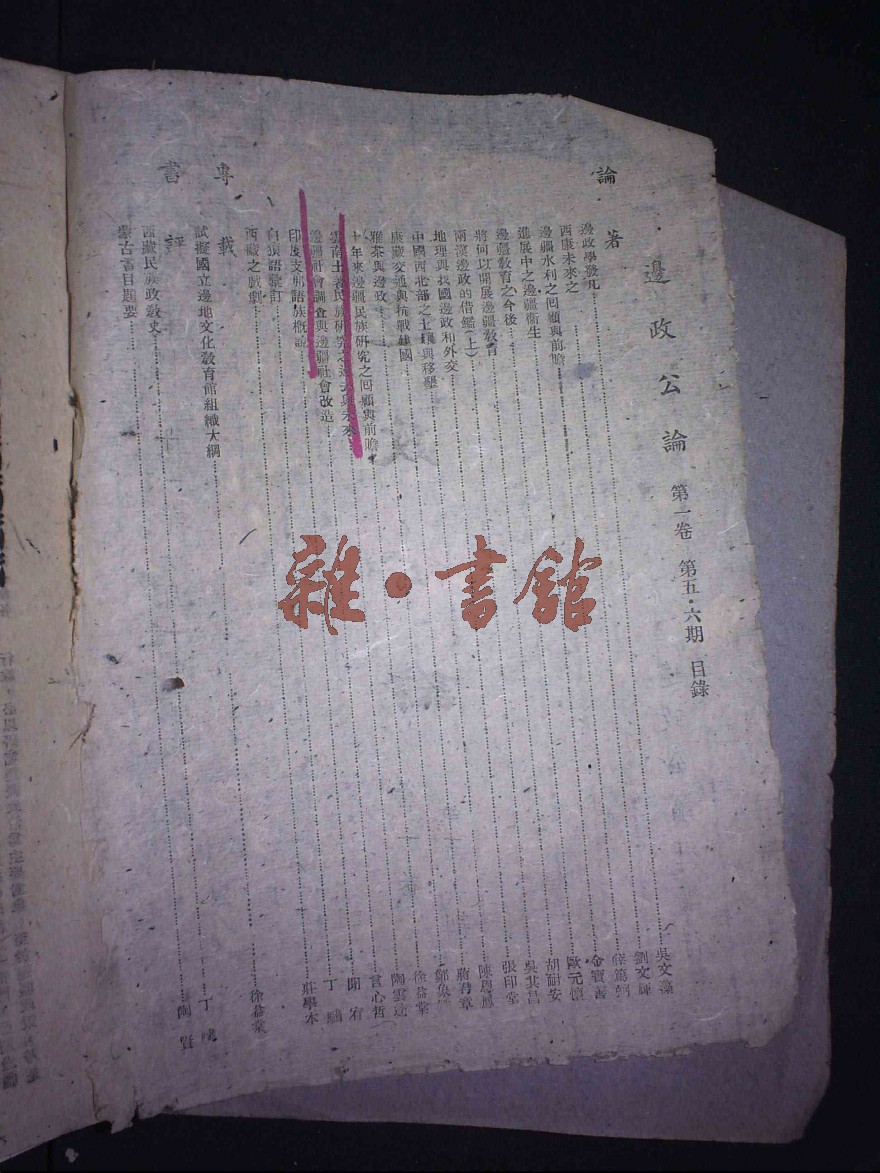 邊政公論 第一卷 第五·六期 目錄
論著
邊政學發凡 吳文藻
西康未來之 劉文輝
邊疆水利之回顧與前瞻
進展中之邊疆衞生 金寶善
邊疆教育之今後 歐元懷
將何以開展邊疆教育 胡耐安
兩漢邊政的借鑑(上) 吳其昌
地理與我國邊政和外交 張印堂
中國西北部之土壤與移墾 陳恩鳳
康藏交通與抗戰建國 蔣君章
雅茶與邊政
十年來邊疆民族研究之回顧與前瞻 徐益棠
雲南土著民族研究之過去與未來 陶雲逵
邊疆社會調查與邊疆社會改造 言心哲
印度支那語族概說 聞宥
白狼語彙訂 丁驌
西藏之戲劇 莊學本
專載
試擬國立邊地文化教育館組織大綱 徐益棠
書評
西藏民族政教史 丁驌
蒙古書目題要 陶賢
雜·書館